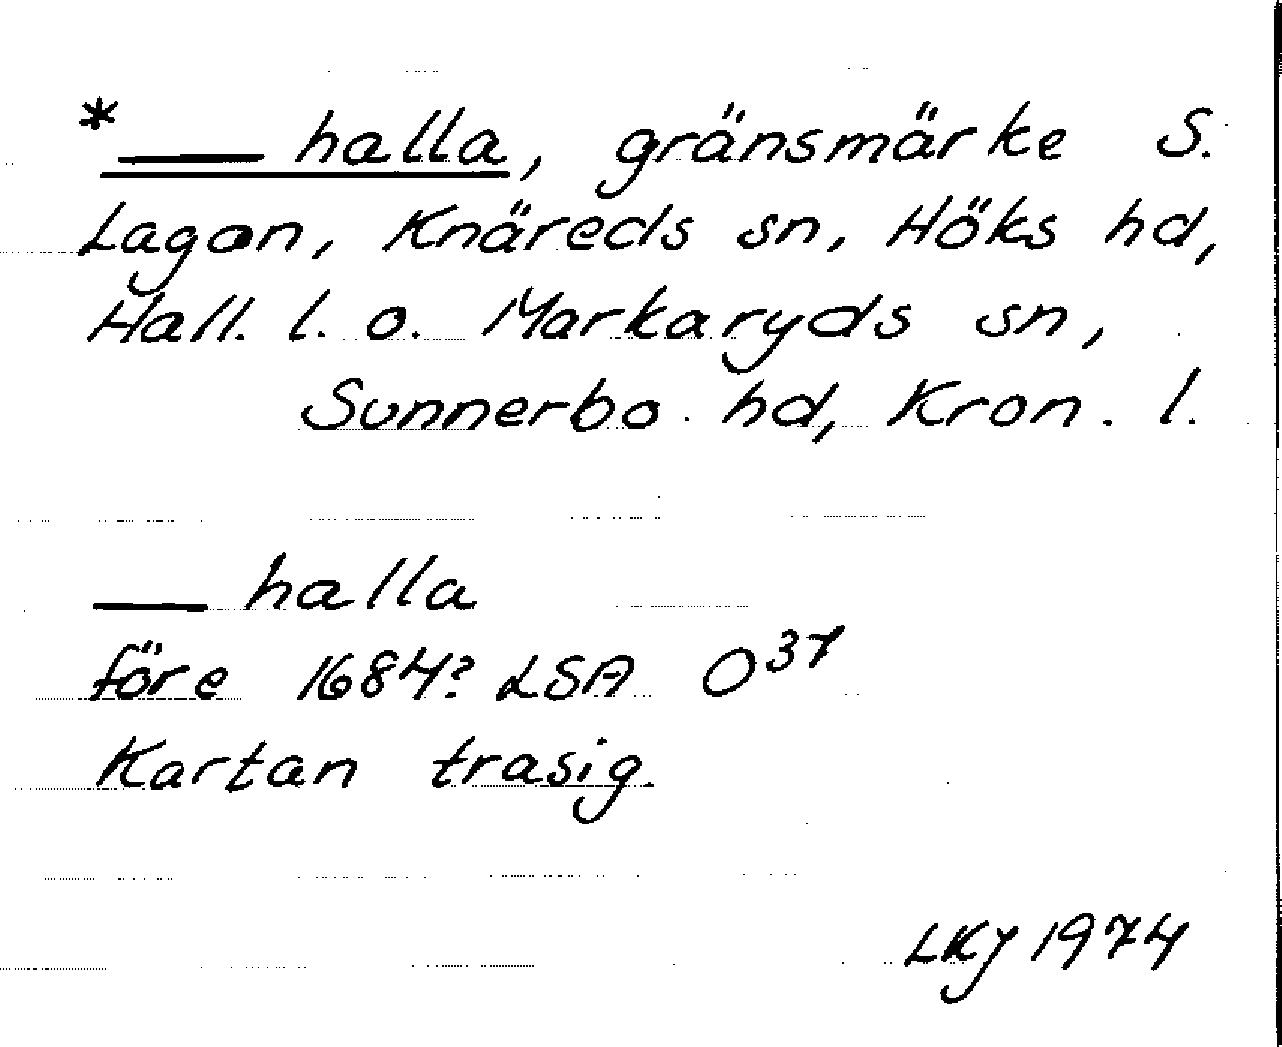 *— halla, gränsmärke S.
Lagan, Knäreds sn, Höks hd,
Hall. l. o. Markaryds sn,
Sunnerbo hd, Kron. l.
— halla
före 1684? LSA O37
Kartan trasig.
LKJ 1974